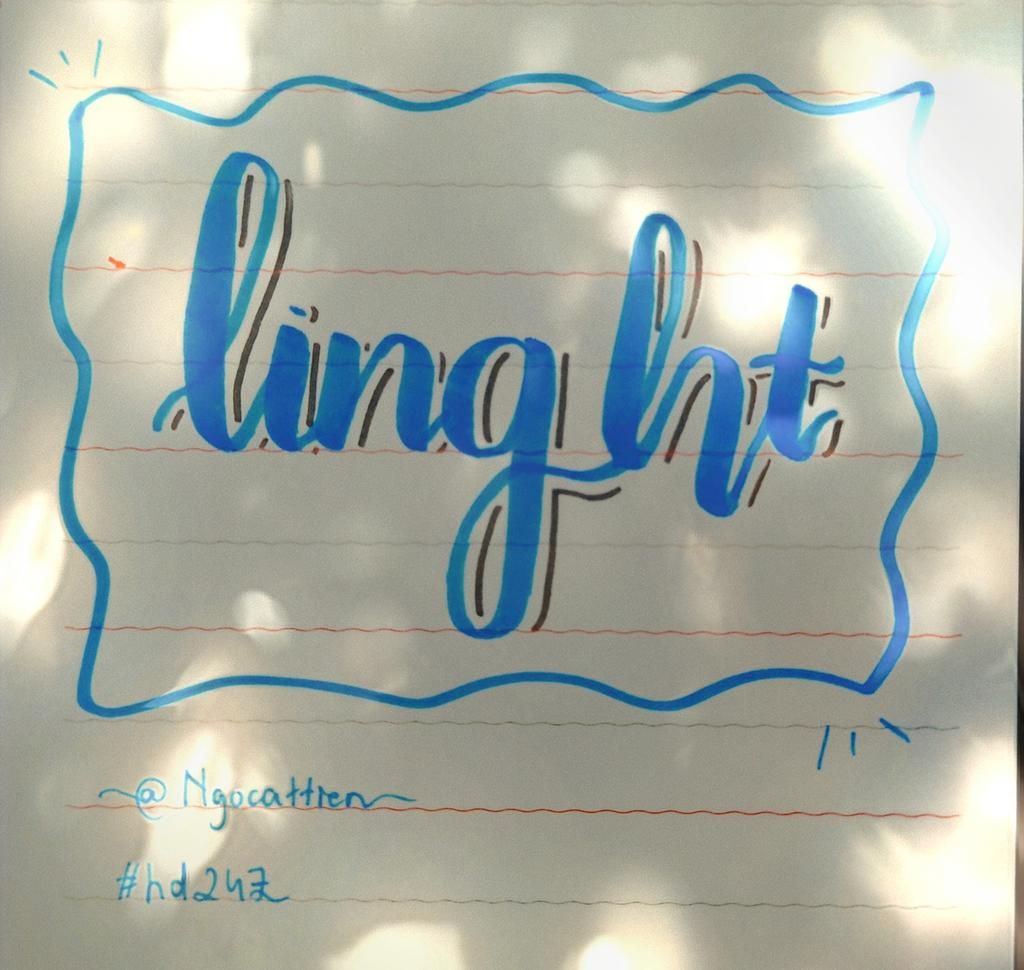 linght
@Ngocattien
#hd247